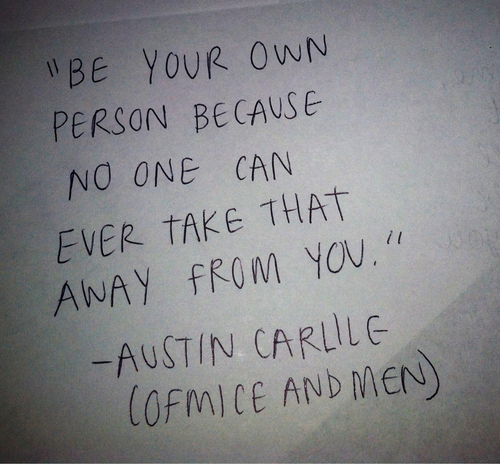 "BE YOUR OWN
PERSON BECAUSE
NO ONE CAN
EVER TAKE THAT
AWAY FROM YOU."
-AUSTIN CARLILE
(OFMICE AND MEN)